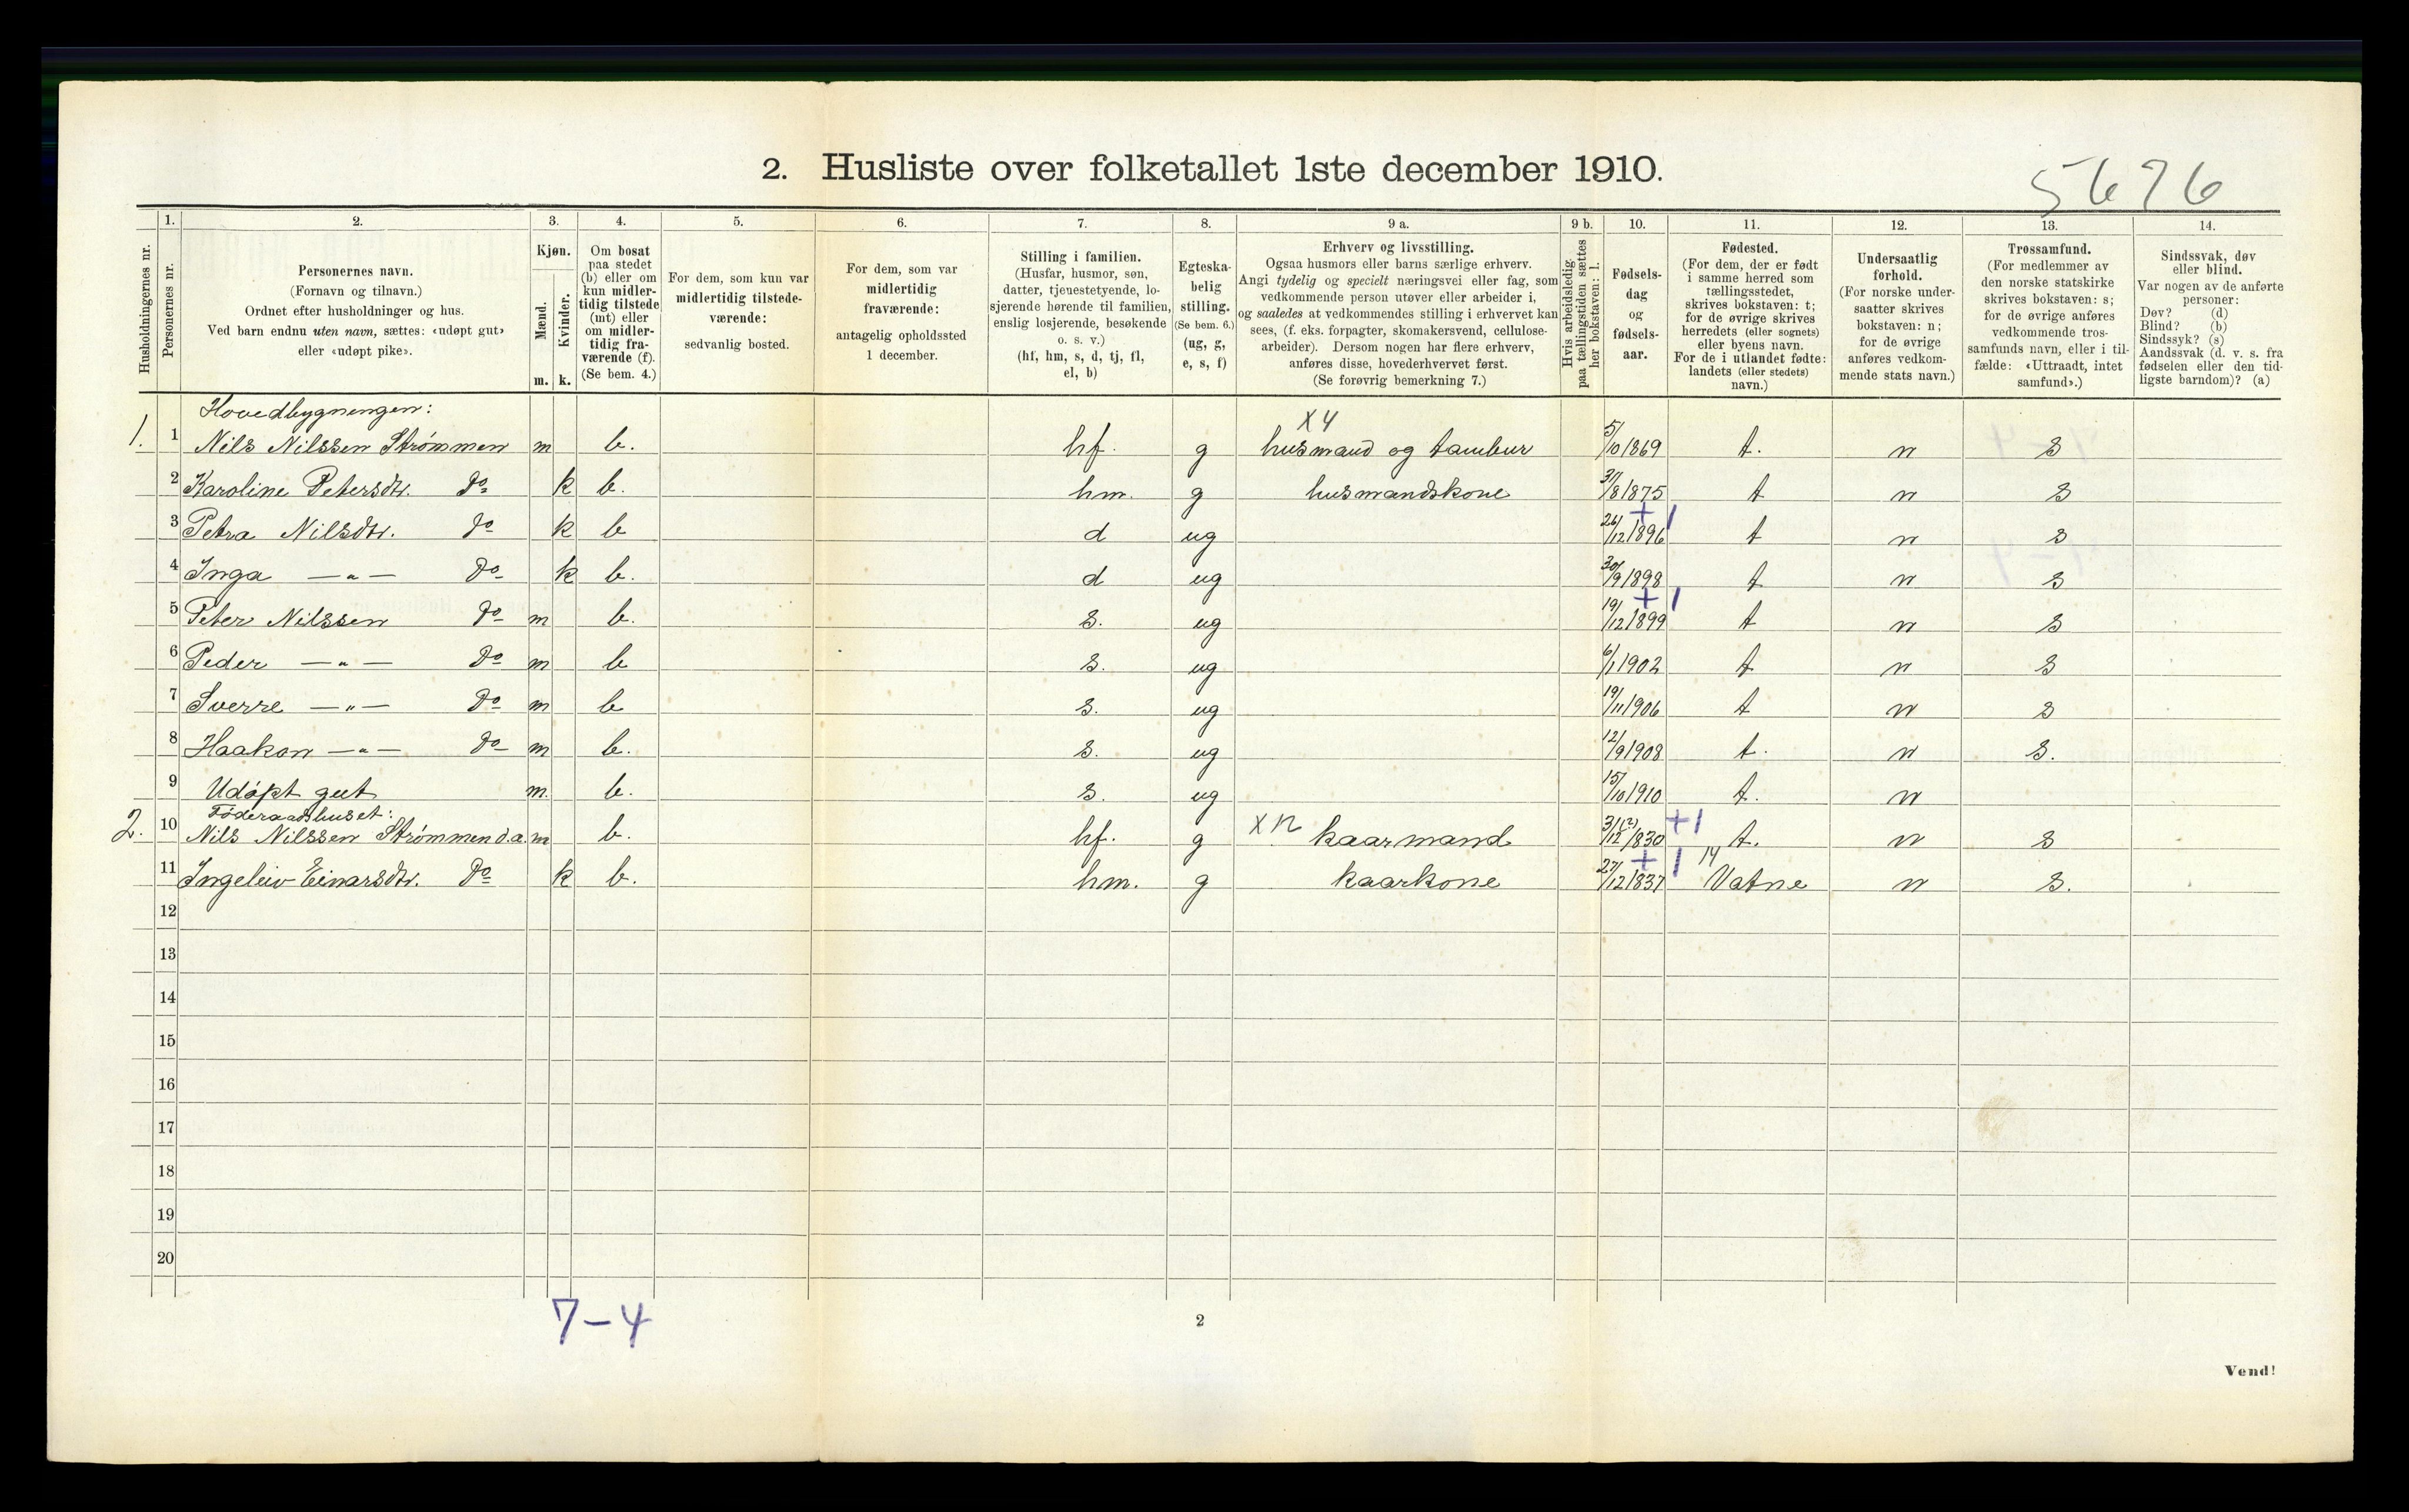 2. Husliste over folketallet 1ste december 1910.
5676
Husholdningernes nr.
1. Personernes nr.
2. Personernes navn.
(Fornavn og tilnavn.)
Ordnet efter husholdninger og hus.
Ved barn endnu uten navn, sættes: «udøpt gut»
eller «udøpt pike».
3. Kjøn.
Mænd. m.
Kvinder. k.
4. Om bosat
paa stedet
(b) eller om
kun midler-
tidig tilstede
(mt) eller
om midler-
tidig fra-
værende (f).
(Se bem. 4.)
5. For dem, som kun var
midlertidig tilstede-
værende:
sedvanlig bosted.
6. For dem, som var
midlertidig
fraværende:
antagelig opholdssted
1 december.
7. Stilling i familien.
(Husfar, husmor, søn,
datter, tjenestetyende, lo-
sjerende hørende til familien,
enslig losjerende, besøkende
o. s. v.)
(hf, hm, s, d, tj, fl,
el, b)
8. Egteska-
belig
stilling.
(Se bem. 6.)
(ug, g,
e, s, f)
9 a. Erhverv og livsstilling.
Ogsaa husmors eller barns særlige erhverv.
Angi tydelig og specielt næringsvei eller fag, som
vedkommende person utøver eller arbeider i,
og saaledes at vedkommendes stilling i erhvervet kan
sees, (f. eks. forpagter, skomakersvend, cellulose-
arbeider). Dersom nogen har flere erhverv,
anføres disse, hovederhvervet først.
(Se forøvrig bemerkning 7.)
9 b. Hvis arbeidsledig
paa tællingstiden sættes
her bokstaven: l.
10. Fødsels-
dag
og
fødsels-
aar.
11. Fødested.
(For dem, der er født
i samme herred som
tællingsstedet,
skrives bokstaven: t;
for de øvrige skrives
herredets (eller sognets)
eller byens navn.
For de i utlandet fødte:
landets (eller stedets)
navn.)
12. Undersaatlig
forhold.
(For norske under-
saatter skrives
bokstaven: n;
for de øvrige
anføres vedkom-
mende stats navn.)
13. Trossamfund.
(For medlemmer av
den norske statskirke
skrives bokstaven: s;
for de øvrige anføres
vedkommende tros-
samfunds navn, eller i til-
fælde: «Uttraadt, intet
samfund».)
14. Sindssvak, døv
eller blind.
Var nogen av de anførte
personer:
Døv? (d)
Blind? (b)
Sindssyk? (s)
Aandssvak (d. v. s. fra
fødselen eller den tid-
ligste barndom)? (a)
Hovedbygningen: X 4
1. 1 Nils Nilssen Strømmen m b. hf. g husmand og tambur 5/10 1869 t. n s
2 Karoline Petersdtr. Do k b. hm. g husmandskone 31/8 1875 t n s
3 Petra Nilsdtr. do k b d ug 26/12 1896 + 1 t n s
4 Inga —"— Do k b. d ug 30/9 1898 t n s
5 Peter Nilssen Do m b. s. ug 19/12 1899 + 1 t n s
6 Peder —"— Do m b s. ug 6/1 1902 t n s
7 Sverre —"— Do m b s. ug 19/11 1906 t n s
8 Haakon —"— Do m b. s. ug 12/9 1908 t. n s.
9 Udøpt gut m. b. s. ug 15/10 1910 t. n
Føderaadshuset:
2. 10 Nils Nilssen Strømmen d.æ. m b. hf. g X 12 kaarmand 31(?)/12 1830 +1 t. n s
11 Ingeleiv Einarsdtr. Do k b. hm. g kaarkone 27/12 1837 + 1 14 Vatne n s.
12
13
14
15
16
17
18
19
20
7-4
2
Vend!